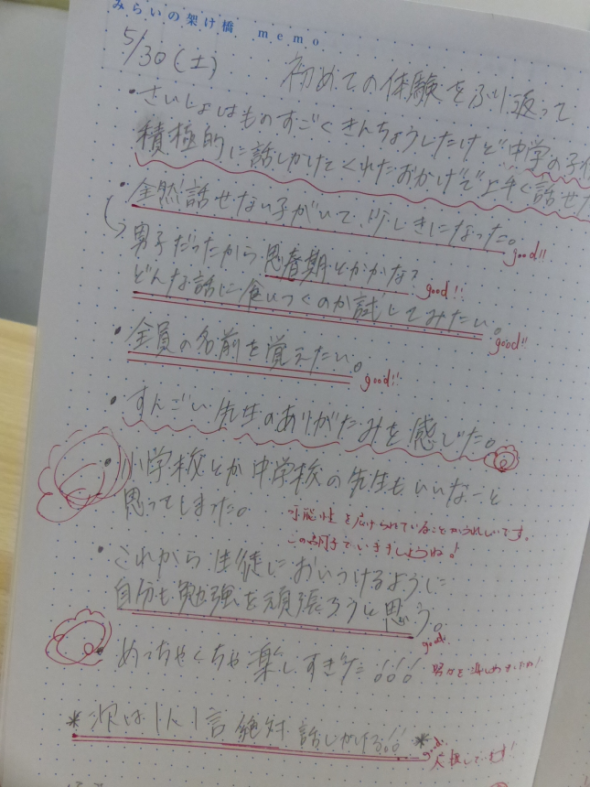 みらいの架け橋 memo
5/30(土) 初めての体験をふり返って
・さいしょはものすごくきんちょうしたけど中学の子が
積極的に話しかけてくれたおかげで上手く話せた
・全然話せない子がいて、少しきになった。 good!!
男子だったから思春期とかかな? good!!
どんな話に食いつくのか試してみたい。 good!!
・全員の名前を覚えたい。 good!!
・すんごい先生のありがたみを感じた。
・小学校とか中学校の先生もいいなーと
思ってしまった。 可能性を広げられていることがうれしいです。
この調子でいきましょうね♪
・これから生徒においつけるように
自分も勉強を頑張ろうと思う。 good
・めっちゃくちゃ楽しすぎた!!!
*次は1人1言絶対話しかける!!*